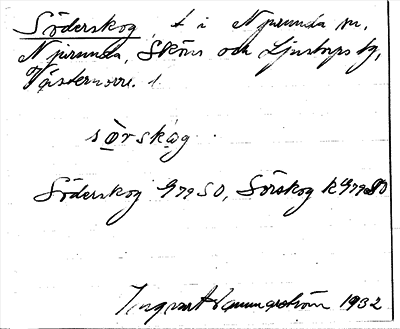 Söderskog, t i Njurunda sn,
Njurunda, Sköns och Ljustorps tg,
Västernorrl. l
sò̱rska̱g
Söderskog G79 SO, Sörskog k G79 SO
Ingvar Hammarström 1932